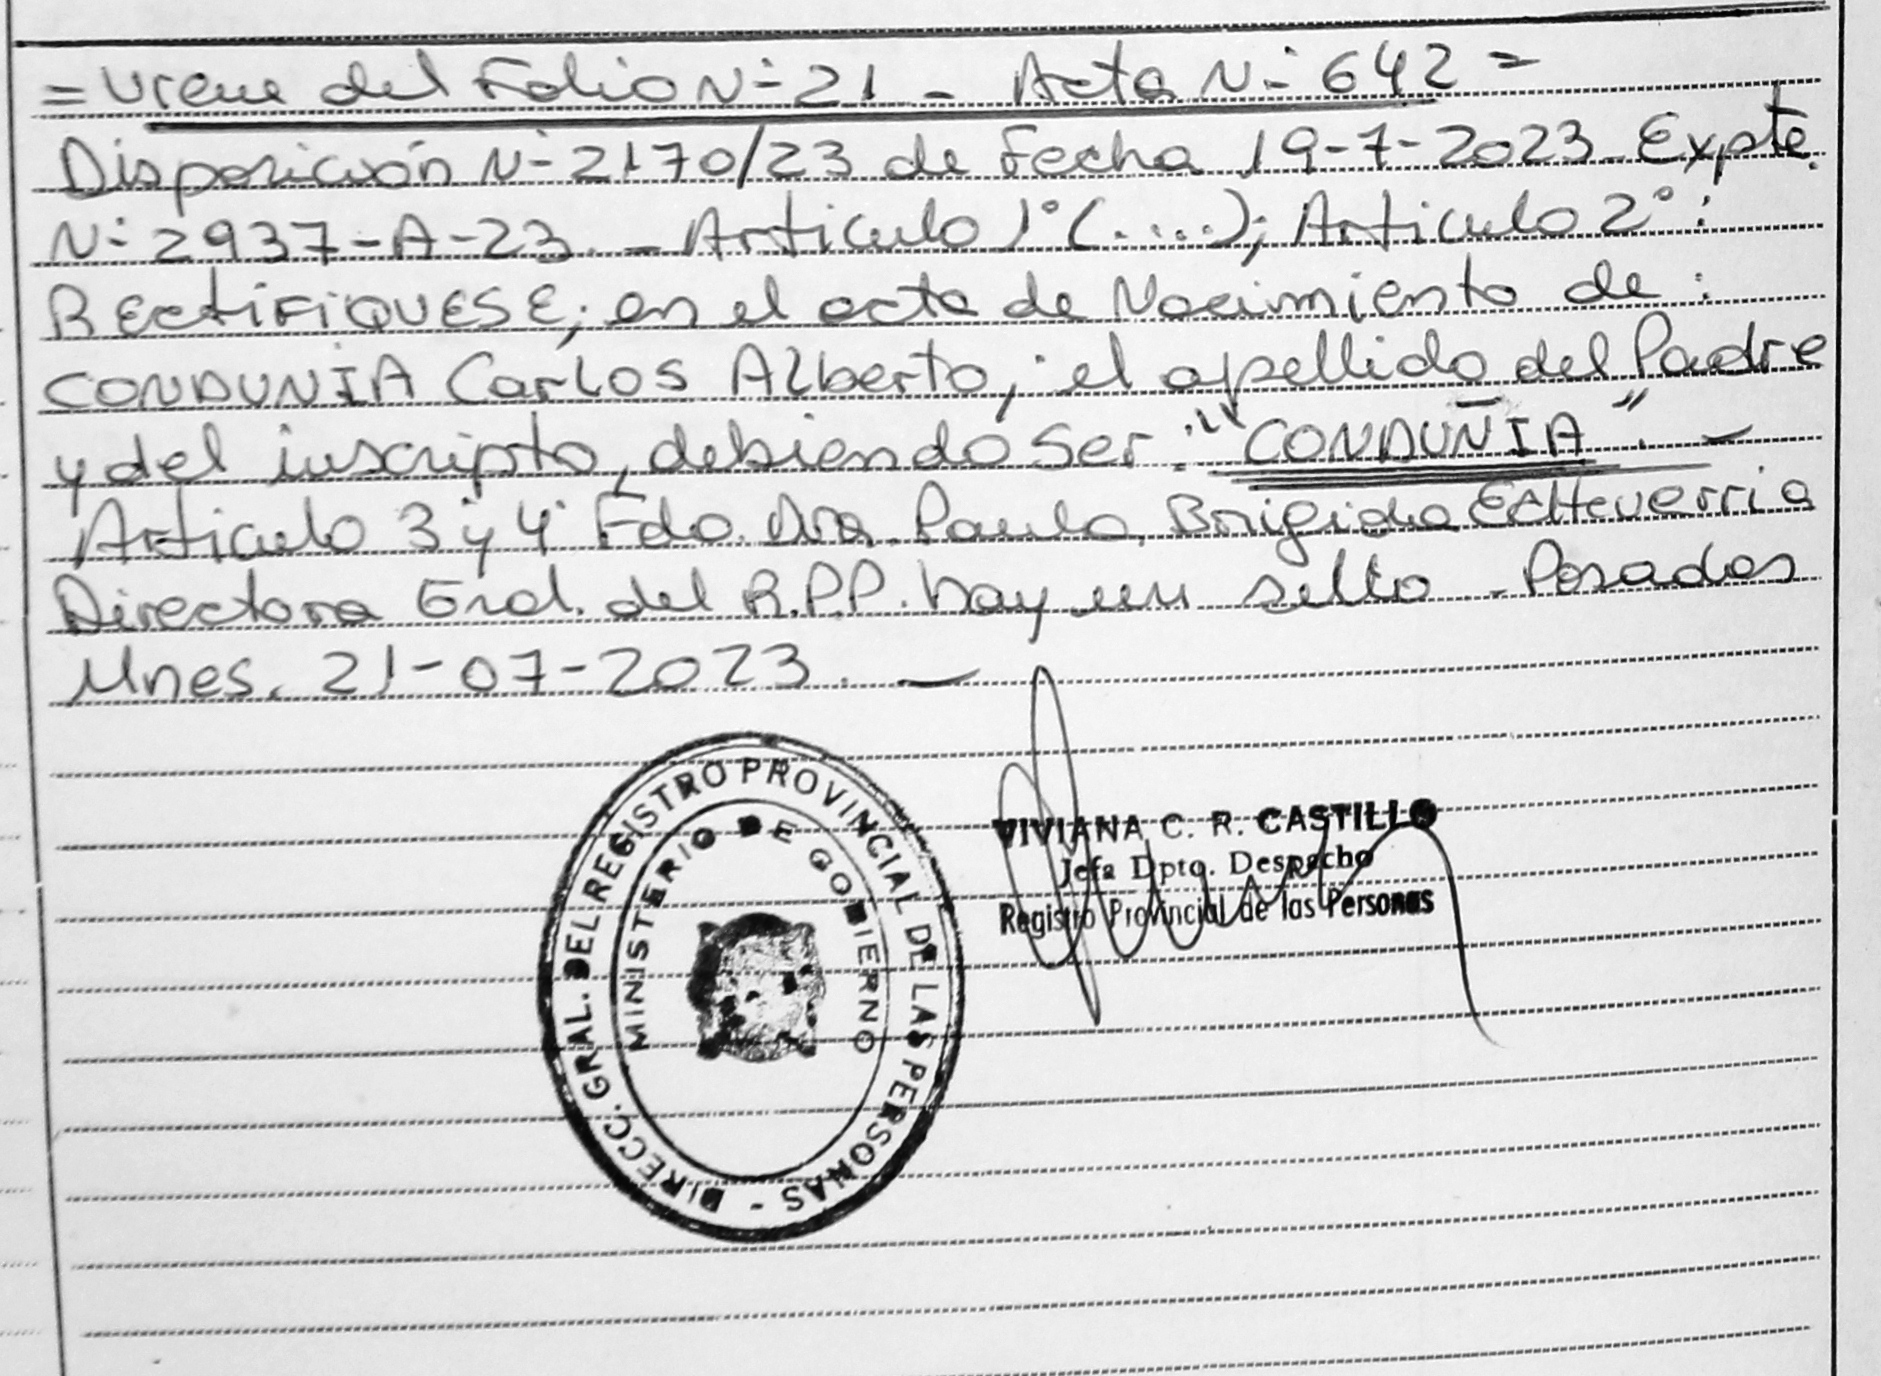 = Viene del Folio N° 21 - Acta N° 642 =
Disposición N° 2170/23 de Fecha 19-7-2023 Expte.
N° 2937-A-23. - Articulo 1° (.....); Articulo 2° :
RECtiFiQUESE; en el acta de Nacimiento de :
CONDUNIA Carlos Alberto; el apellido del Padre
y del inscripto, debiendo ser: "CONDUÑIA". -
Articulo 3 y 4° Fdo. Dra. Paula Brigida Echeverria
Directora Gral. del R.P.P. hay un sello - Posadas
Mnes. 21-07-2023. -
DIRECC. GRAL. DEL REGISTRO PROVINCIAL DE LAS PERSONAS -
MINISTERIO DE GOBIERNO
VIVIANA C. R. CASTILLO
Jefa Dpto. Despacho
Registro Provincial de las Personas